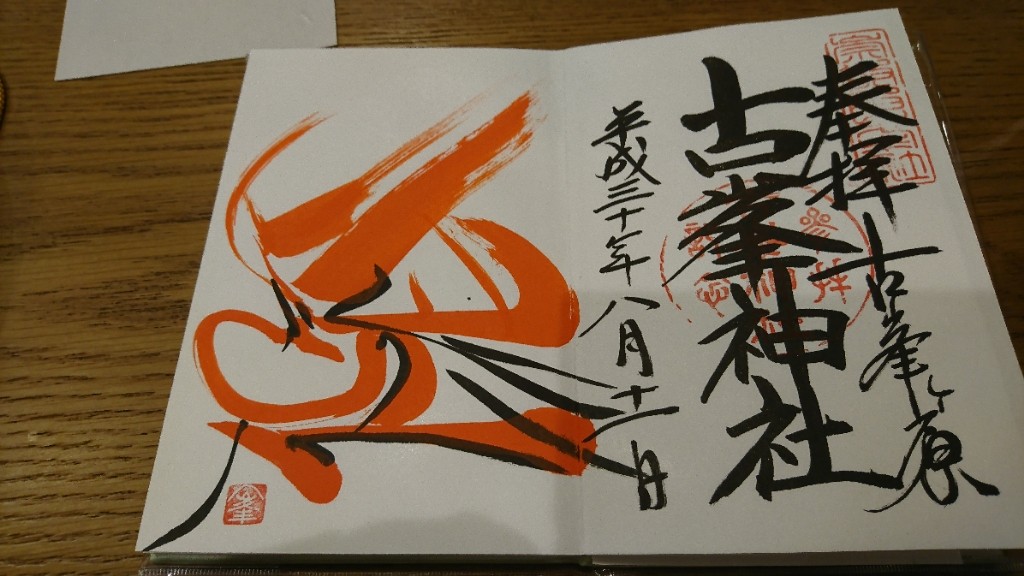 奉拝
古峯ヶ原
古峯神社
平成三十年八月十一日
峯